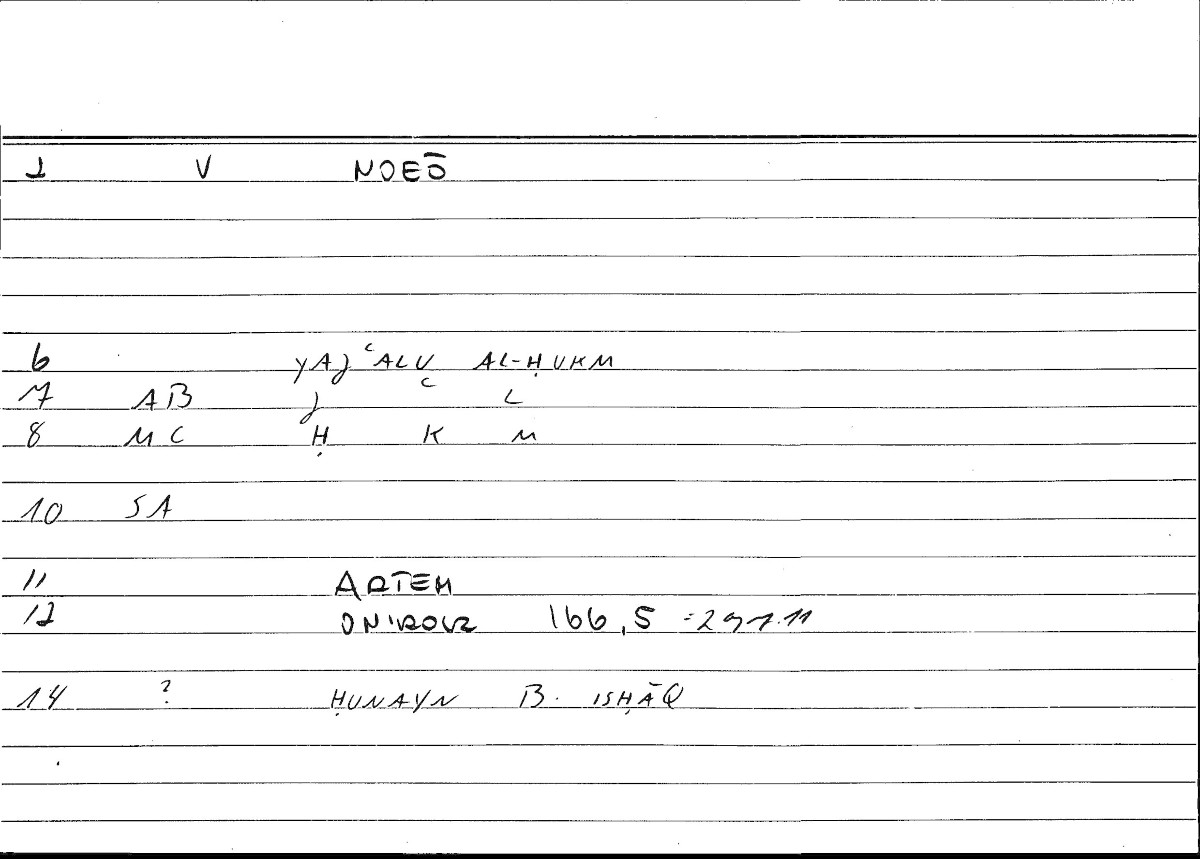 1 V NOEŌ
6 YAJʿALU AL-ḤUKM
7 AB J ʿ L
8 MC Ḥ K M
10 SA
11 ARTEM
12 ONIROCR 166,5 = 297.11
14 ? ḤUNAYN B. ISḤĀQ